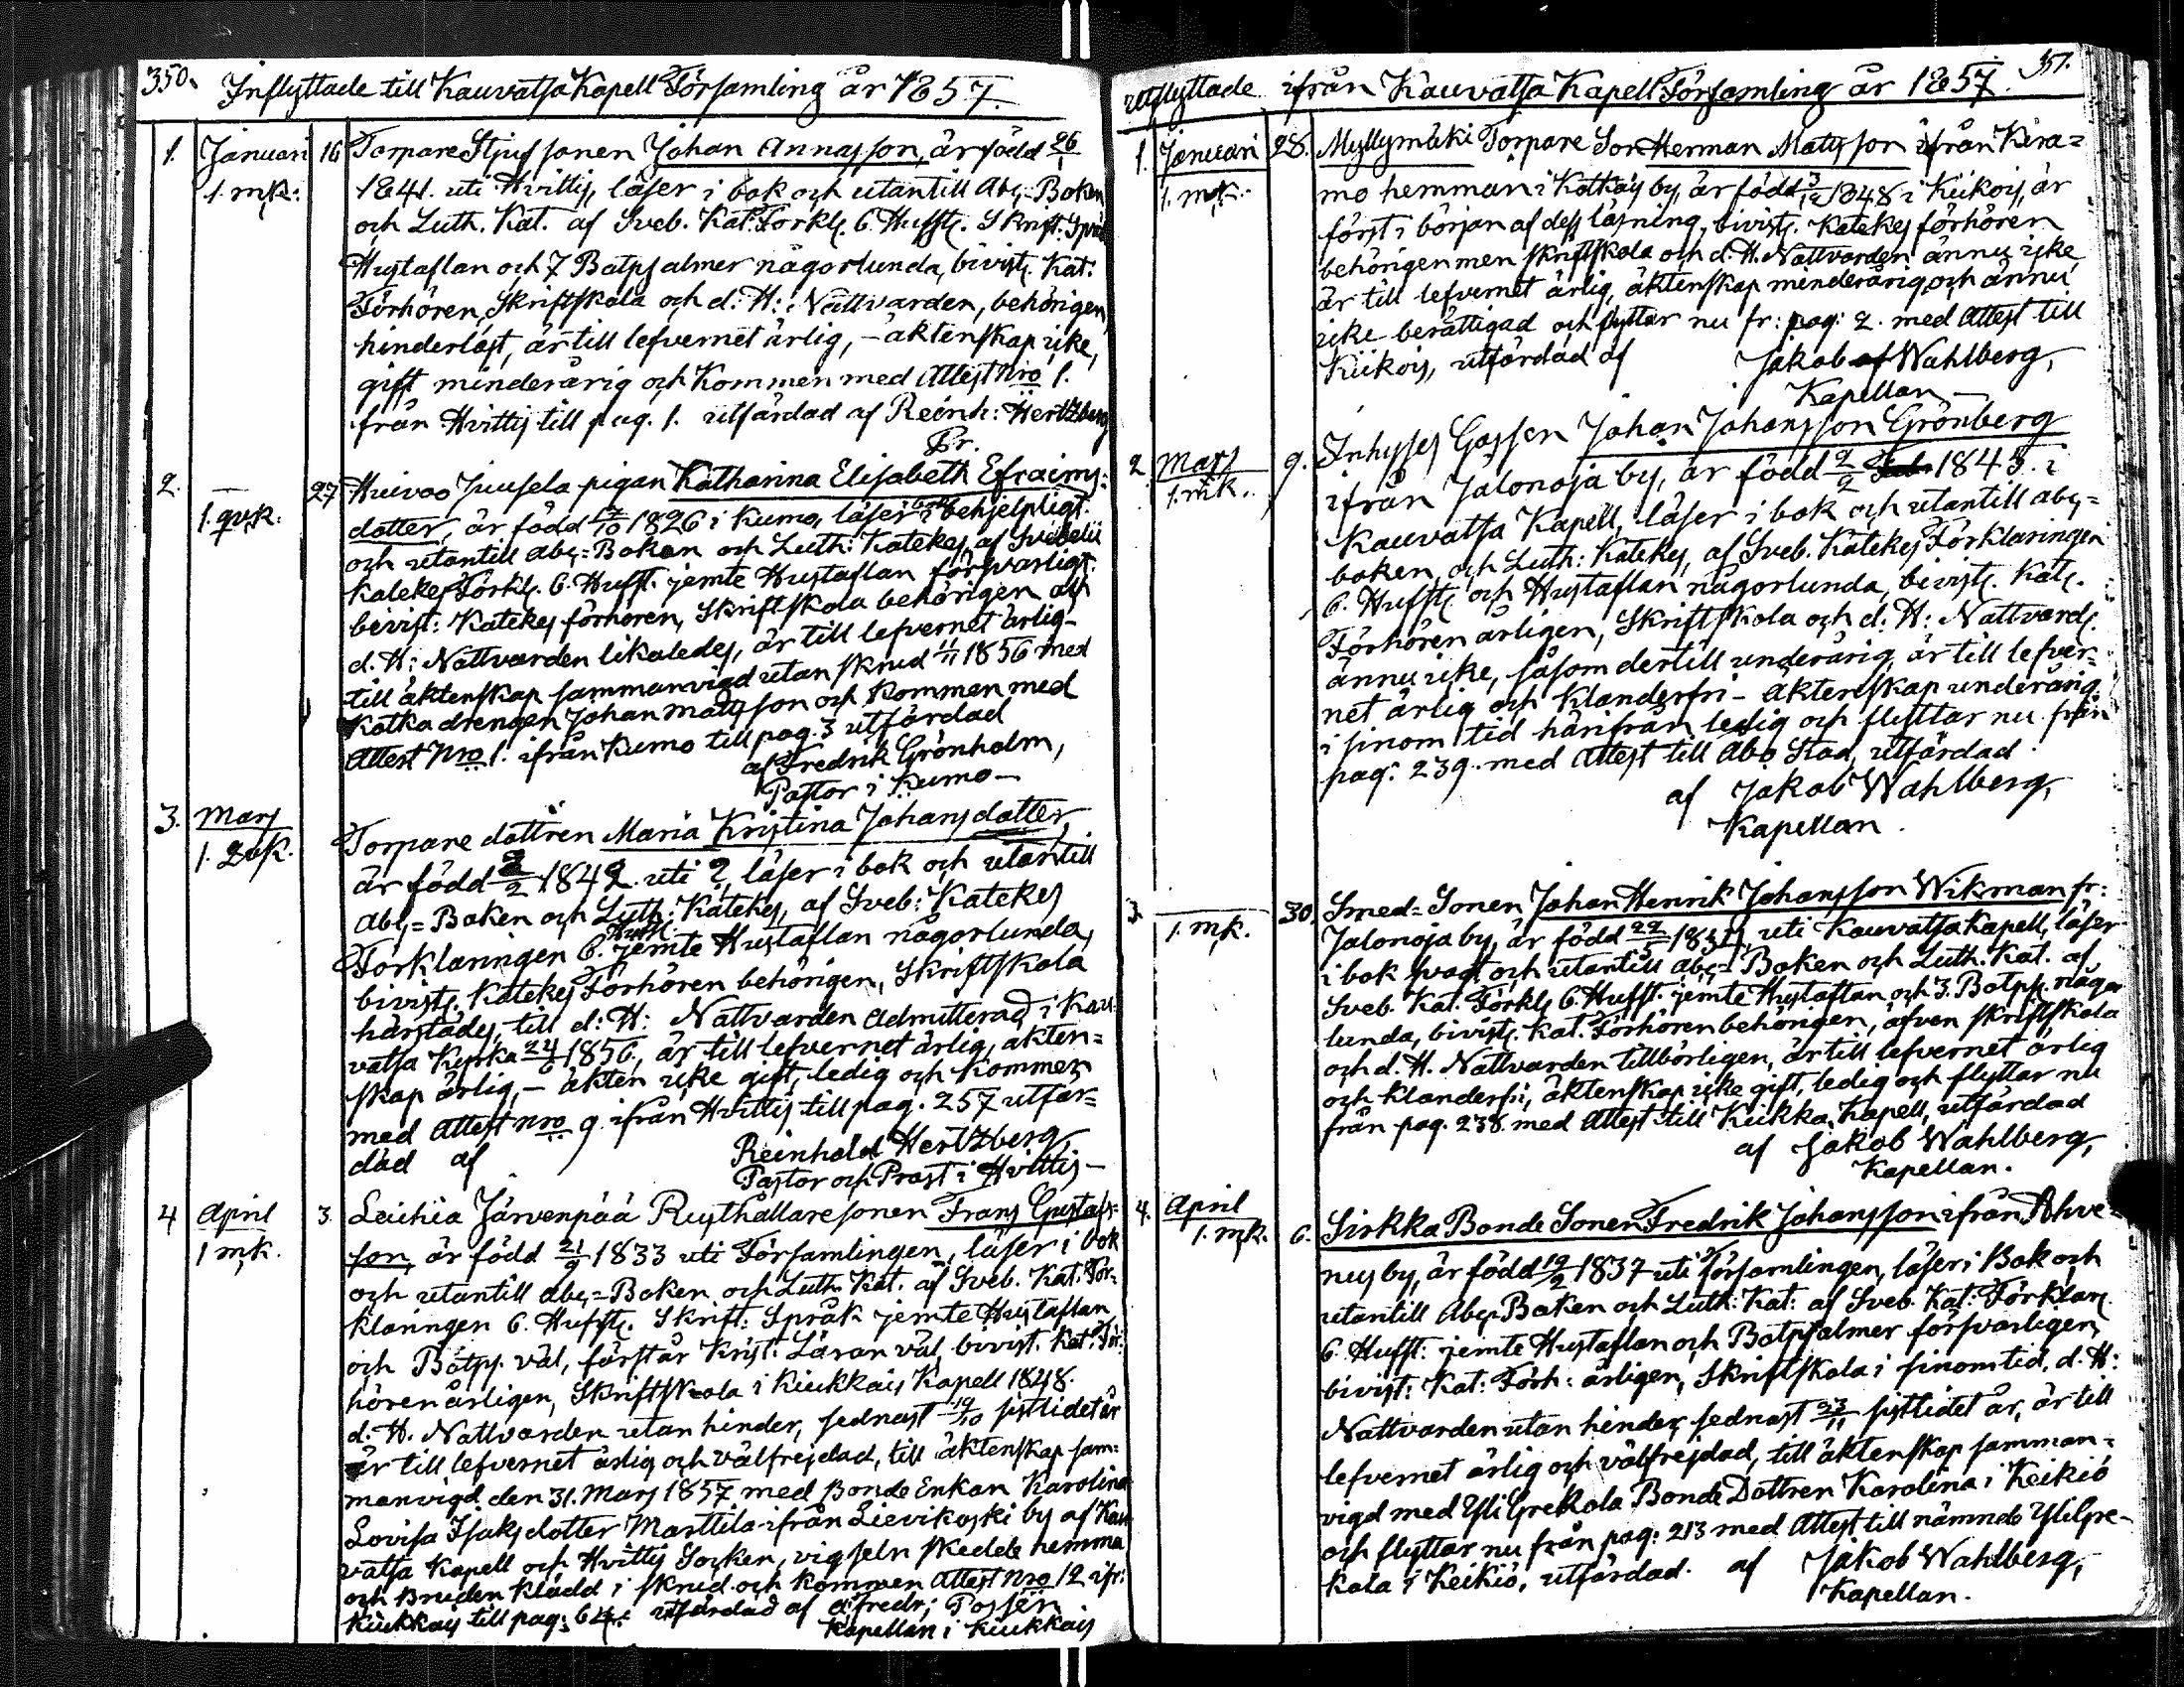 350.
Inflyttade till Kauvatsa Kapell Församling år 1857.
1. Januari 16 Torpare Stjufsonen Johan Annasson, är född 26/1
1. mk: 1841. uti Hvittis, läser i bok och utantill Abc-Boken
och Luth. Kat. af Sveb. Kat. Förkl. 6. Hufst. Skrift. Språk
Hustaflan och 7 Botpsalmer någorlunda, bivist. Kat:
Förhören, Skriftskola och d: H: Nattvarden, behörigen,
hinderlöst, är till lefvernet ärlig, – äktenskap icke,
gift minderårig och Kommen med Attest Nro 1.
från Hvittis till pag. 1. utfärdad af Reinh: Hertzberg
Pr.
2. — 27 Huivoo Juusela pigan Katharina Elisabeth Efraims-
1. qvk. dotter, är född 1826 i Kumo, läser i bok behjelpligt
och utantill Abc=Boken och Luth: Kateches af Svebelii
Kateches Förkl. 6. Hufst. jemte Hustaflan försvarligt.
bevist: Kateches förhören, Skriftskola behörigen och
d. H: Nattvarden likaledes, är till lefvernet ärlig –
till äktenskap sammanvigd utan skrud 1856 med
Kotka drengen Johan Matsson och Kommen med
Attest Nro 1. ifrån Kumo till pag. 3 utfärdad
af Fredrik Grönholm,
Pastor i Kumo –
3. Mars Torpare dottren Maria Kristina Johansdotter,
1. qvk. är född 1842. uti ?, läser i bok och utantill
Abc=Boken och Luth: Kateches, af Sveb: Kateches
Förklaringen 6. Hufst. jemte Hustaflan någorlunda,
bivist. Kateches Förhören behörigen, Skriftskola
härstädes, till d: H: Nattvarden Admitterad i Kau-
vatsa Kyrka 24/6 1856, är till lefvernet ärlig, äkten=
skap ärlig, – äkten icke gift, ledig och Kommen
med Attest Nro 9. ifrån Hvittis till pag. 257 utfär=
dad af Reinhold Hertzberg,
Pastor och Prost i Hvittis –
4 April 3. Leikia Järvenpää Rusthållaresonen Frans Gustafs-
1 mk. son, är född 21/9 1833 uti Församlingen, läser i bok
och utantill Abc=Boken och Luth. Kat. af Sveb. Kat. För-
klaringen 6. Hufst. Skrift: Språk jemte Hustaflan
och Botps. väl, förstår Krist. Läran väl, bivist. Kat. För-
hören årligen, Skriftskola i Kiukkais Kapell 1848.
d. H. Nattvarden utan hinder, sednast 19/10 sistlidet år
är till lefvernet ärlig och välfrejdad, till äktenskap sam-
manvigd den 31. Mars 1857 med Bonde Enkan Karolina
Lovisa Isaksdotter Marttila ifrån Lievikoski by af Kau-
vatsa Kapell och Hvittis Socken, vigseln skedde hemma
och Bruden klädd i skrud och kommen Attest Nro 12 ifr:
Kiukkais till pag: utfärdad af Fredr: Possen
Kapellan i Kiukkais
351.
utflyttade ifrån Kauvatsa Kapell Församling år 1857.
1. Januari 28. Myllymäki Torpare Son Herman Matsson ifrån Kira=
1. mk. mo hemman i Kotkois by, är född 1848 i Kiikois, är
först i början af dess läsning, bivist. Kateches förhören
behörigen men skriftskola och d. H. Nattvarden ännu icke
är till lefvernet ärlig, äktenskap minderårig och ännu
icke berättigad och flyttar nu fr: pag: 2. med Attest till
Kiikois, utfärdad af Jakob Wahlberg,
Kapellan
2. Mars 9. Inhyses Gossen Johan Johansson Grönberg
1. mk. ifrån Jalonoja by, är född 2/9 1845. i
Kauvatsa Kapell, läser i bok och utantill abc=
boken och Luth: Kateches, af Sveb. Kateches Förklaringen
6. Hufst. och Hustaflan någorlunda, bivist. Kat.
Förhören årligen, Skriftskola och d: H: Nattvard.
ännu icke, såsom dertill underårig, är till lefver=
net ärlig och Klanderfri – äktenskap underårig
i sinom tid härifrån ledig och flyttar nu från
pag: 239. med Attest till Åbo Stad, utfärdad
af Jakob Wahlberg,
Kapellan.
3. — 30. Smed=Sonen Johan Henrik Johansson Wikman fr:
1. mk. Jalonoja by, är född 22/5 uti Kauvatsa Kapell, läser
i bok svagt och utantill abc= Boken och Luth. Kat. af
Sveb. Kat. Förkl. 6 Hufst. jemte Hustaflan och 3. Botps. någor
lunda, bivist. Kat. Förhören behörigen, äfven skriftskola
och d. H. Nattvarden tillbörligen, är till lefvernet ärlig
och klanderfri, äktenskap icke gift, ledig och flyttar nu
från pag. 238. med Attest till Keikka Kapell, utfärdad
af Jakob Wahlberg,
Kapellan.
4. April 6. Sirkka Bonde Sonen Fredrik Johansson ifrån Ahve-
1. mk. nus by, är född 19/2 1837 uti församlingen, läser i Bok och
utantill Abc-Boken och Luth: Kat: af Sveb. Kat: Förklar.
6. Hufst: jemte Hustaflan och Botpsalmer försvarligen,
bivist: Kat: Förh: årligen, Skriftskola i sinom tid, d. H:
Nattvarden utan hinder, sednast 23/11 sistlidet år, är till
lefvernet ärlig och välfrejdad, till äktenskap samman-
vigd med Yli Grekola Bonde Dottren Karolina i Keikiö
och flyttar nu från pag: 213 med Attest till nämnde YliGre-
kola i Keikiö, utfärdad. af Jakob Wahlberg,
Kapellan.